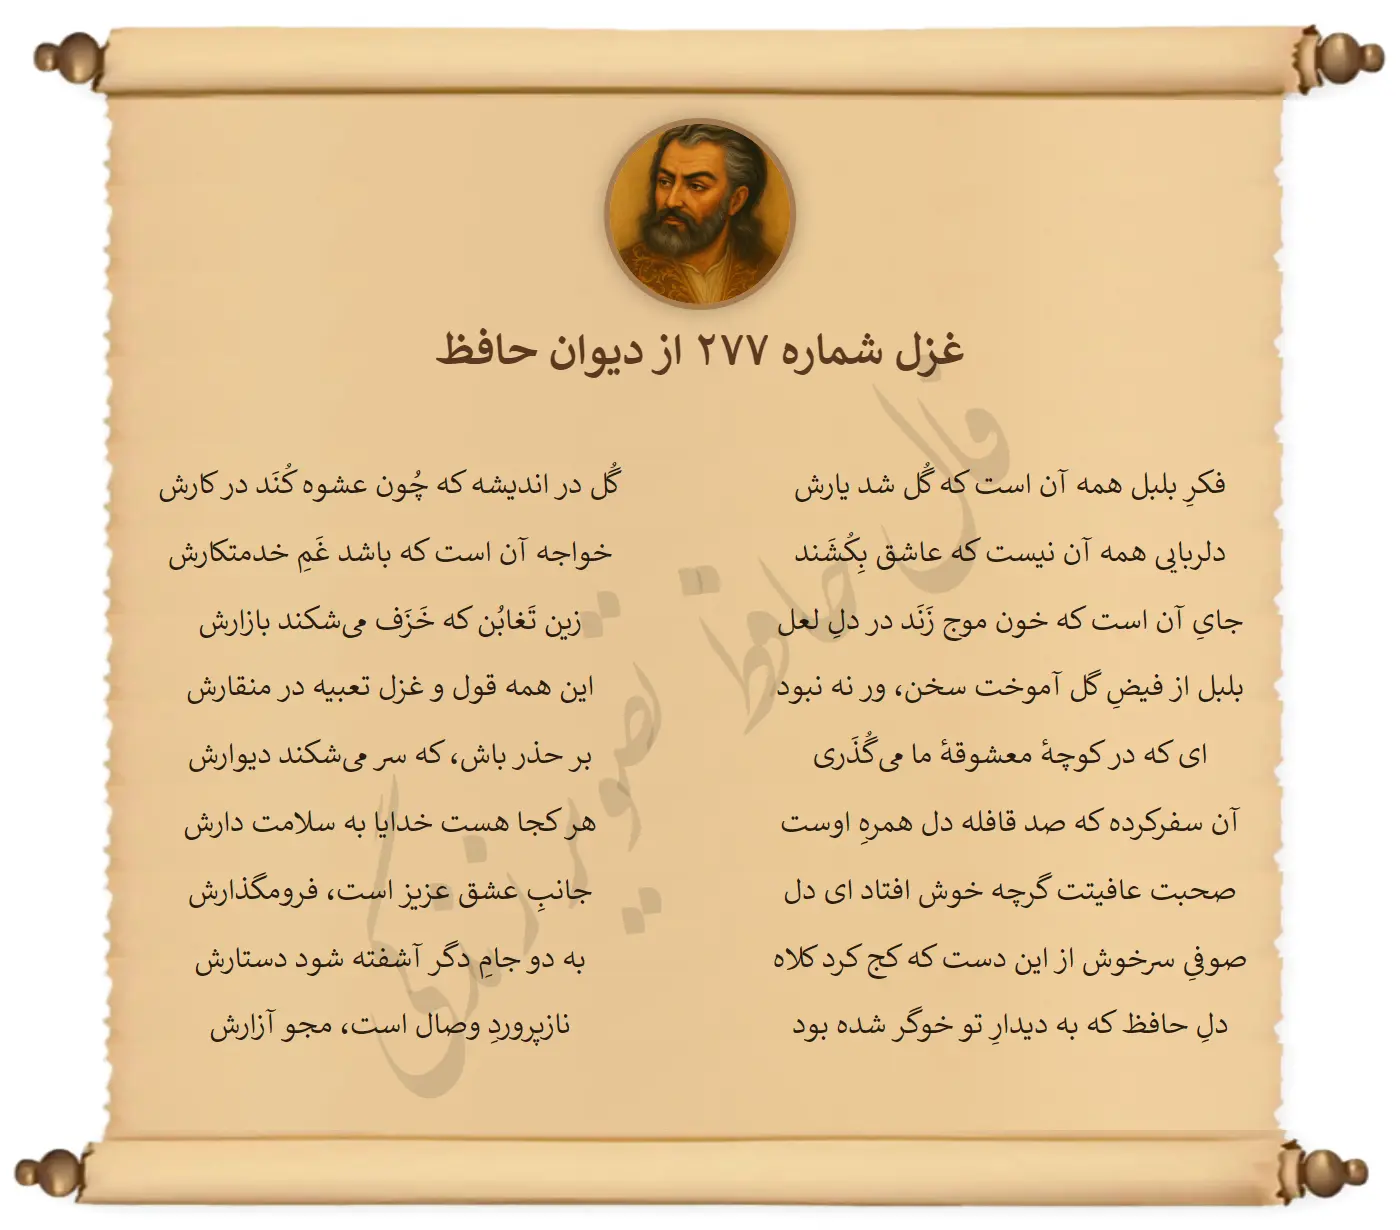 غزل شماره ۲۷۷ از دیوان حافظ
فکرِ بلبل همه آن است که گُل شد یارش
گُل در اندیشه که چُون عشوه کُنَد در کارش
دلربایی همه آن نیست که عاشق بِکُشَند
خواجه آن است که باشد غَمِ خدمتکارش
جایِ آن است که خون موج زَنَد در دلِ لعل
زین تَغابُن که خَزَف می‌شکند بازارش
بلبل از فیضِ گل آموخت سخن، ور نه نبود
این همه قول و غزل تعبیه در منقارش
ای که در کوچهٔ معشوقهٔ ما می‌گُذَری
بر حذر باش، که سر می‌شکند دیوارش
آن سفرکرده که صد قافله دل همرهِ اوست
هر کجا هست خدایا به سلامت دارش
صحبت عافیتت گرچه خوش افتاد ای دل
جانبِ عشق عزیز است، فرومگذارش
صوفیِ سرخوش از این دست که کج کرد کلاه
به دو جامِ دگر آشفته شود دستارش
دلِ حافظ که به دیدارِ تو خوگر شده بود
نازپروردِ وصال است، مجو آزارش
فال حافظ تصویر زندگی